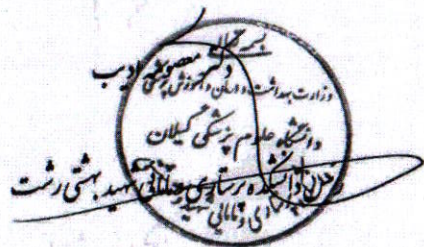 بسمه تعالی
دکتر معصومه ادیب
وزارت بهداشت، درمان و آموزش پزشکی
دانشگاه علوم پزشکی گیلان
دانشکده پرستاری مامایی شهید بهشتی رشت